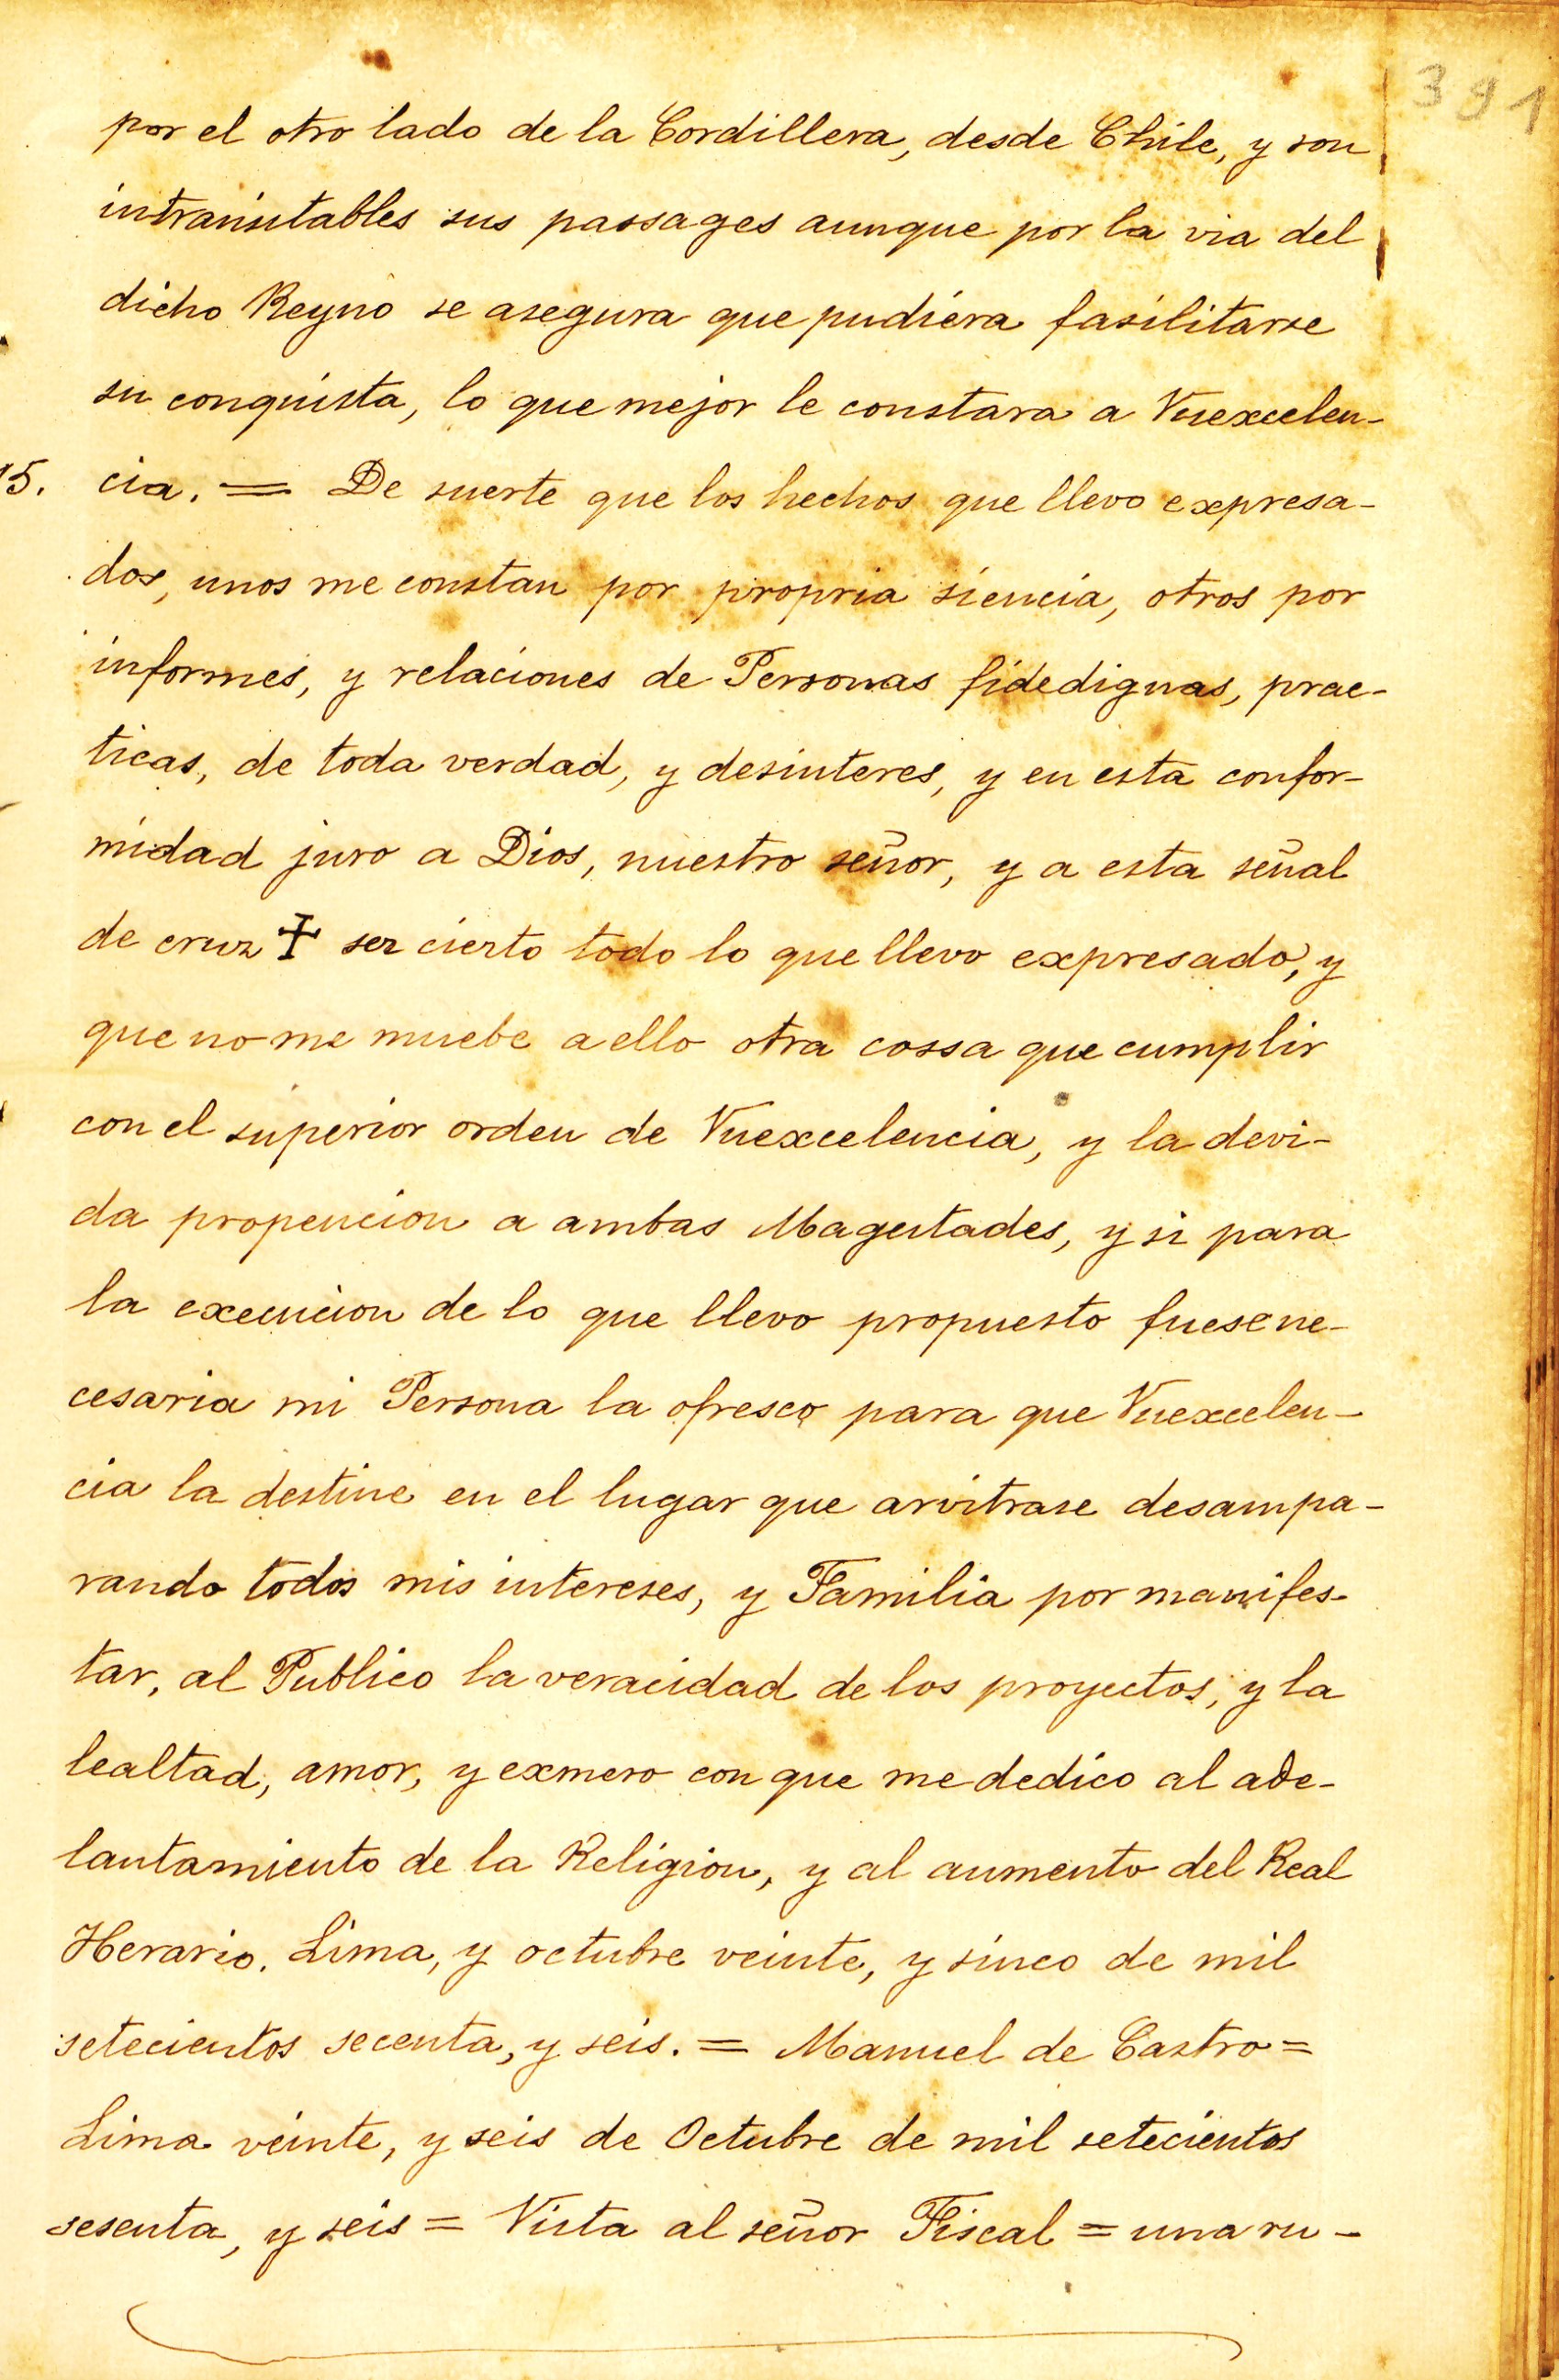 391
por el otro lado de la Cordillera, desde Chile, y son
intransitables sus passages aunque por la via del
dicho Reyno se asegura que pudiera fasilitarse
su conquista, lo que mejor le constara a Vuexcelen-
15. cia. = De suerte que los hechos que llevo expresa-
dos, unos me constan por propria siencia, otros por
informes, y relaciones de Personas fidedignas, prac-
ticas, de toda verdad, y desinteres, y en esta confor-
midad juro a Dios, nuestro señor, y a esta señal
de cruz ✝ ser cierto todo lo que llevo expresado, y
que no me muebe a ello otra cossa que cumplir
con el superior orden de Vuexcelencia, y la devi-
da propencion a ambas Magestades, y si para
la execucion de lo que llevo propuesto fuese ne-
cesaria mi Persona la ofresco para que Vuexcelen-
cia la destine en el lugar que arvitrase desampa-
rando todos mis intereses, y Familia por manifes-
tar, al Publico la veracidad de los proyectos, y la
lealtad, amor, y exmero con que me dedico al ade-
lantamiento de la Religion, y al aumento del Real
Herario. Lima, y octubre veinte, y sinco de mil
setecientos secenta, y seis. = Manuel de Castro =
Lima veinte, y seis de Octubre de mil setecientos
sesenta, y seis = Vista al señor Fiscal = una ru-